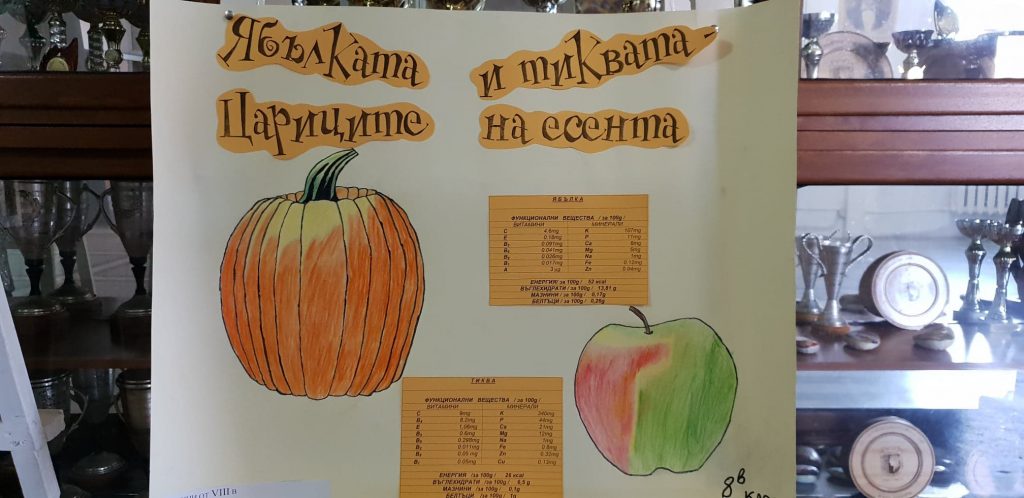 Ябълката и тиквата -
Цариците на есента
ЯБЪЛКА
ФУНКЦИОНАЛНИ ВЕЩЕСТВА / за 100g /
ВИТАМИНИ МИНЕРАЛИ
C 4,6mg K 107mg
E 0.18mg P 11mg
0.091mg Ca 6mg
0.041mg Mg 5mg
0.026mg Na 1mg
0.017mg Fe 0.12mg
A 3 µg Zn 0.04mg
ЕНЕРГИЯ / за 100g / 52 kcal
ВЪГЛЕХИДРАТИ / за 100g / 13,81 g
МАЗНИНИ / за 100g / 0,17g
БЕЛТЪЦИ / за 100g / 0,26g
ТИКВА
ФУНКЦИОНАЛНИ ВЕЩЕСТВА / за 100g /
ВИТАМИНИ МИНЕРАЛИ
C 9mg K 340mg
P 44mg
E 1,06mg Ca 21mg
0.6mg Mg 12mg
0.298mg Na 1mg
0.011mg Fe 0.8mg
0.05 mg Zn 0.32mg
0.05mg Cu 0.13mg
ЕНЕРГИЯ / за 100g / 26 kcal
ВЪГЛЕХИДРАТИ / за 100g / 6,5 g
МАЗНИНИ / за 100g / 0,1g
БЕЛТЪЦИ / за 100g / 1g
ОТ VIII в
8в